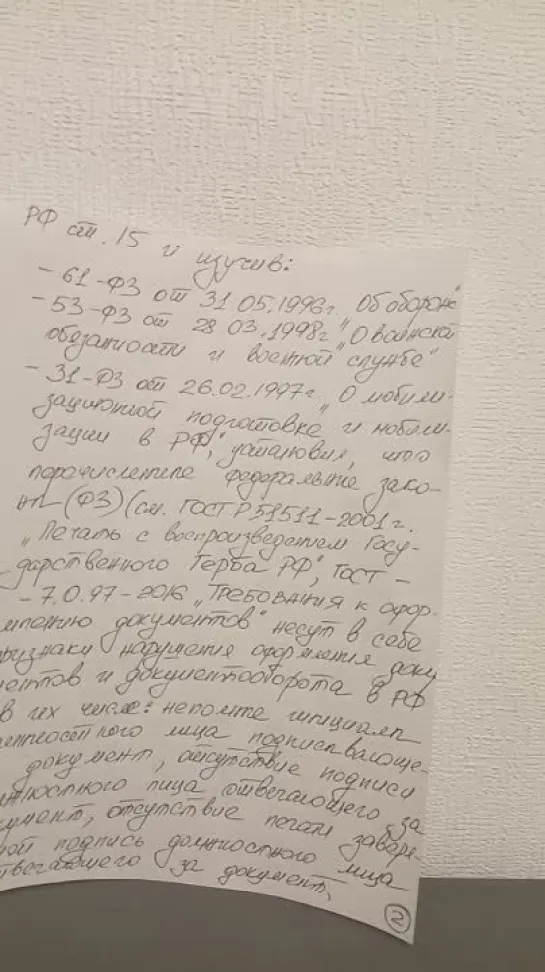 РФ ст. 15 и изучив:
- 61-ФЗ от 31 05.1996г. „Об обороне"
- 53-ФЗ от 28 03.1998г „О воинской
обязанности и военной службе"
- 31-ФЗ от 26.02.1997г. „О мобили-
зационной подготовке и мобили-
зации в РФ", установил, что
перечисленные федеральные зако-
ны (ФЗ) (см. ГОСТ Р 51511-2001 г.
„Печать с воспроизведением Госу-
дарственного Герба РФ", ГОСТ -
- 7.0.97-2016 „Требования к офор-
млению документов" несут в себе
признаки нарушения оформления доку
ментов и документооборота в РФ
в их числе: неполные инициалы
лица подписывающе-
документ, отсутствие подписи
лица отвечающего за
документ, отсутствие печати завере
ной подпись должностного лица
отвечающего за документ,
2